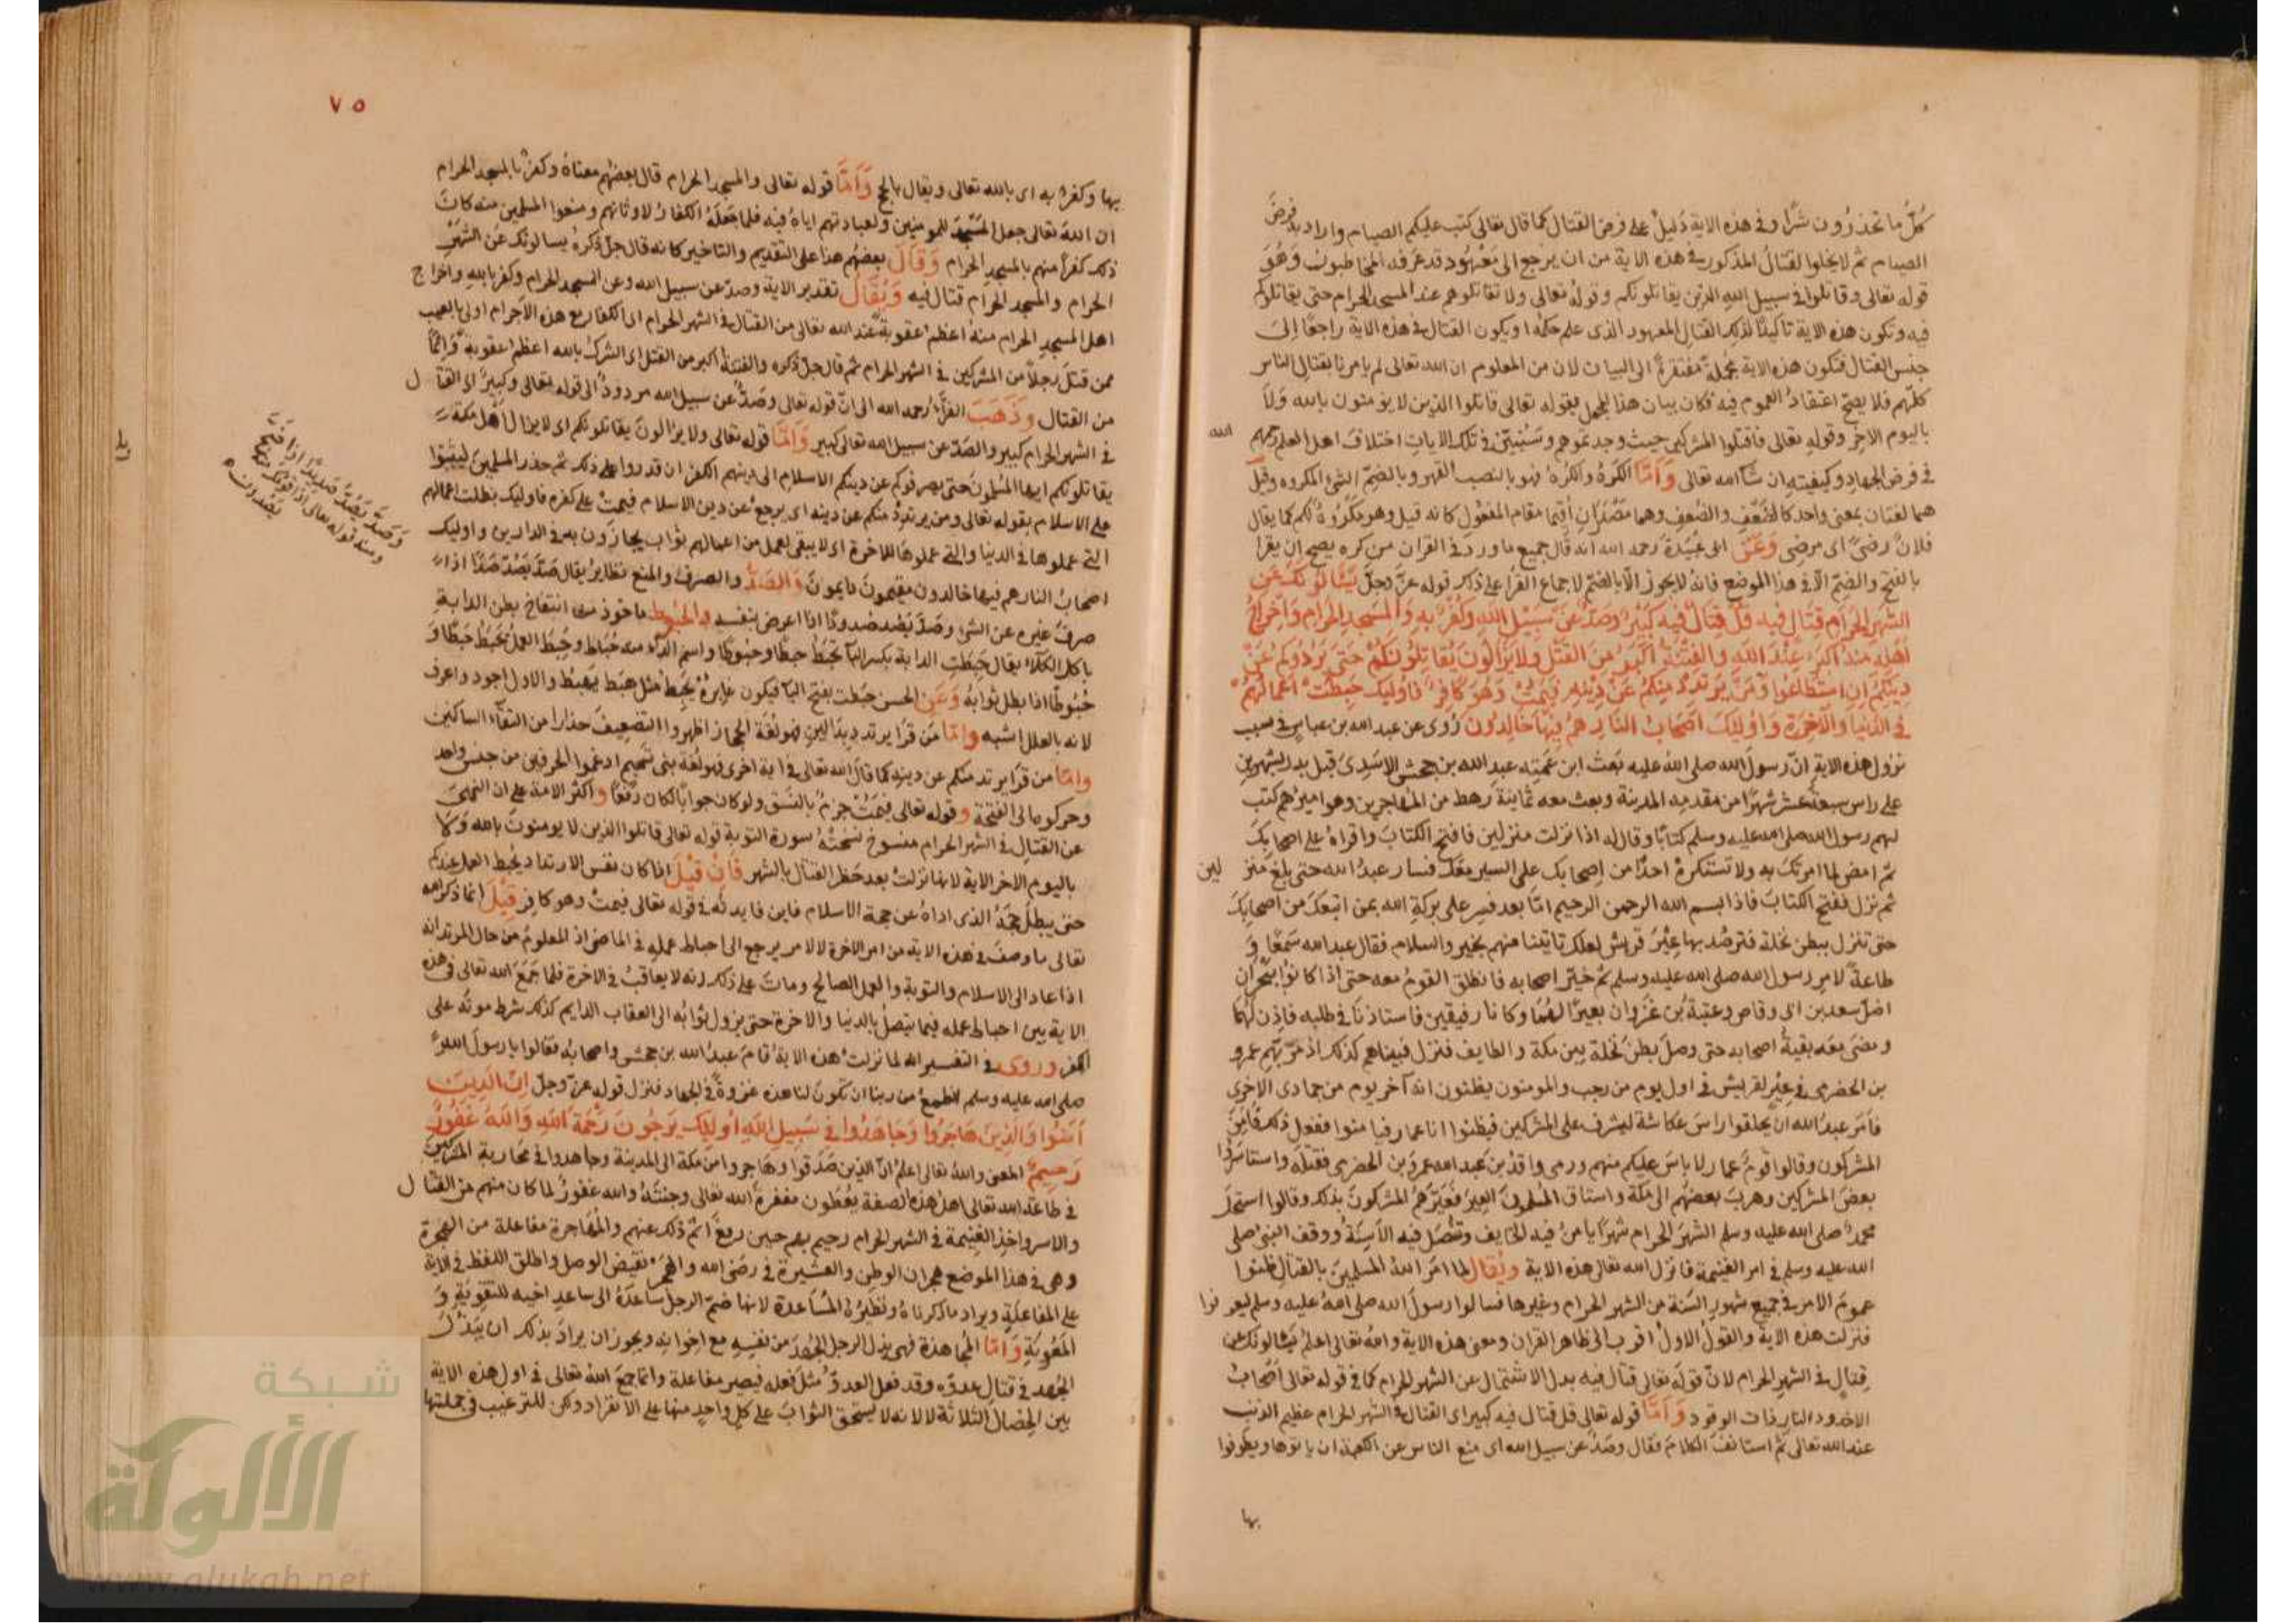 كل ما تحذرون شرا وفي هذه الاية دليل على فرض القتال كما قال تعالى كتب عليكم الصيام واراد به فرض
الصيام ثم لا يخلوا لقتال المذكور في هذه الاية من ان يرجع الى معهود قد عرفه المخاطبون وهو
قوله تعالى وقاتلوا في سبيل الله الذين يقاتلونكم وقوله تعالى ولا تقاتلوهم عند المسجد الحرام حتى يقاتلوكم
فيه وتكون هذه الاية تاكيدا لذلك القتال المعهود الذي علم حكمه او يكون القتال في هذه الاية راجعا الى
جنس القتال فتكون هذه الاية مجملة مفتقرة الى البيان لان من المعلوم ان الله تعالى لم يامرنا بقتال الناس
كلهم فلا يصح اعتقاد العموم فيه فكان بيان هذا المجمل بقوله تعالى قاتلوا الذين لا يؤمنون بالله ولا
باليوم الاخر وقوله تعالى فاقتلوا المشركين حيث وجدتموهم وسنبين في تلك الايات اختلاف اهل العلم رحمهم الله
في فرض الجهاد وكيفيته ان شا الله تعالى واما الكره والكره فهو بالنصب القهر وبالضم الشي المكروه وقيل
هما لغتان بمعنى واحد كالضعف والضعف وهما مصدران اقيما مقام المفعول كانه قيل وهو مكروه لكم كما يقال
فلان رضى اى مرضى وعن ابى عبيدة رحمه الله انه قال جميع ما ورد في القران من كره يصح ان يقرا
بالفتح والضم الا في هذا الموضع فانه لا يجوز الا بالضم لاجماع القرا على ذلك قوله عز وجل يسالونك عن
الشهر الحرام قتال فيه قل قتال فيه كبير وصد عن سبيل الله وكفر به والمسجد الحرام واخراج
اهله منه اكبر عند الله والفتنة اكبر من القتل ولا يزالون يقاتلونكم حتى يردوكم عن
دينكم ان استطاعوا ومن يرتدد منكم عن دينه فيمت وهو كافر فاوليك حبطت اعمالهم
في الدنيا والاخرة واوليك اصحاب النار هم فيها خالدون روى عن عبد الله بن عباس في سبب
نزول هذه الاية ان رسول الله صلى الله عليه بعث ابن عمته عبد الله بن جحش الاسدى قبل بدر بشهرين
على راس سبعة عشر شهرا من مقدمه المدينة وبعث معه ثمانية رهط من المهاجرين وهو اميرهم كتب
لهم رسول الله صلى الله عليه وسلم كتابا وقال له اذا نزلت منزلين فافتح الكتاب واقراه على اصحابك
ثم امض لما امرتك به ولا تستكره احدا من اصحابك على السير معك فسار عبد الله حتى بلغ منزلين
ثم نزل ففتح الكتاب فاذا بسم الله الرحمن الرحيم اما بعد فسر على بركة الله بمن اتبعك من اصحابك
حتى تنزل ببطن نخلة فترصد بها عير قريش لعلك تاتينا منهم بخير والسلام فقال عبد الله سمعا و
طاعة لامر رسول الله صلى الله عليه وسلم ثم خير اصحابه فانطلق القوم معه حتى اذا كانوا ببحران
اضل سعد بن ابى وقاص وعتبة بن غزوان بعيرا لهما وكانا رفيقين فاستاذنا في طلبه فاذن لهما
ومضى معه بقية اصحابه حتى وصل بطن نخلة بين مكة والطايف فنزل فبيناهم كذلك اذ مر بهم عمرو
بن الحضرمى في عير لقريش في اول يوم من رجب والمومنون يظنون انه آخر يوم من جمادى الاخرى
فامر عبد الله ان يحلقوا راس عكاشة ليشرف على المشركين فيظنوا انا عمار فيامنوا ففعل ذلك فامن
المشركون وقالوا قوم عمار لا باس عليكم منهم ورمى واقد بن عبد الله عمرو بن الحضرمى فقتله واستاسروا
بعض المشركين وهرب بعضهم الى مكة واستاق المسلمون العير فعيرهم المشركون بذلك وقالوا استحل
محمد صلى الله عليه وسلم الشهر الحرام شهرا يامن فيه الخايف وتنصل فيه الاسنة ووقف النبى صلى
الله عليه وسلم في امر الغنيمة فانزل الله تعالى هذه الاية ويقال لما امر الله المسلمين بالقتال ظنوا
عموم الامر في جميع شهور السنة من الشهر الحرام وغيرها فسالوا رسول الله صلى الله عليه وسلم ليعرفوا
فنزلت هذه الاية والقول الاول اقرب الى ظاهر القران ومعنى هذه الاية والله تعالى اعلم يسالونك عن
قتال في الشهر الحرام لان قوله تعالى قتال فيه بدل الاشتمال عن الشهر الحرام كما في قوله تعالى اصحاب
الاخدود النار ذات الوقود واما قوله تعالى قل قتال فيه كبير اى القتال في الشهر الحرام عظيم الذنب
عند الله تعالى ثم استانف الكلام فقال وصد عن سبيل الله اى منع الناس عن الكعبة ان ياتوها ويطوفوا
بها
٧٥
بها وكفر به اى بالله تعالى ويقال بالحج واما قوله تعالى والمسجد الحرام قال بعضهم معناه وكفر بالمسجد الحرام
ان الله تعالى جعل المسجد للمومنين ولعبادتهم اياه فيه فلما جعله الكفار لاوثانهم ومنعوا المسلمين منه كان
ذلك كفرا منهم بالمسجد الحرام وقال بعضهم هذا على التقديم والتاخير كانه قال جل ذكره يسالونك عن الشهر
الحرام والمسجد الحرام قتال فيه ويقال تقدير الاية وصد عن سبيل الله وعن المسجد الحرام وكفر بالله واخراج
اهل المسجد الحرام منه اعظم عقوبة عند الله تعالى من القتال في الشهر الحرام اى الكفار مع هذه الاجرام اولى بالعيب
ممن قتل رجلا من المشركين في الشهر الحرام ثم قال جل ذكره والفتنة اكبر من القتل اى الشرك بالله اعظم عقوبة واثما
من القتال وذهب الفراء رحمه الله الى ان قوله تعالى وصد عن سبيل الله مردود الى قوله تعالى وكبير اى القتال
في الشهر الحرام كبير والصد عن سبيل الله تعالى كبير واما قوله تعالى ولا يزالون يقاتلونكم اى لا يزال اهل مكة
يقاتلونكم ايها المسلمون حتى يصرفوكم عن دينكم الاسلام الى دينهم الكفر ان قدروا على ذلك ثم حذر المسلمين ليثبتوا
على الاسلام بقوله تعالى ومن يرتدد منكم عن دينه اى يرجع عن دين الاسلام فيمت على كفره فاوليك بطلت اعمالهم
التى عملوها في الدنيا والتى عملوها للاخرة اى لا يبقى لعمل من اعمالهم ثواب يجازون به في الدارين واوليك
اصحاب النار هم فيها خالدون مقيمون دايمون والصد والصرف والمنع نظاير يقال صد يصد صدا اذا
صرف غيره عن الشى وصد يصد صدودا اذا اعرض بنفسه والحبوط ماخوذ من انتفاخ بطن الدابة
باكل الكلاء يقال حبطت الدابة بكسر البا تحبط حبطا وحبوطا واسم الداء منه حباط وحبط العمل يحبط حبطا و
حبوطا اذا بطل ثوابه وعن الحسن حبطت بفتح البا فيكون غابره يحبط مثل هبط يهبط والاول اجود واعرف
لانه بالعلل اشبه واما من قرا يرتدد بدالين فهو لغة الحجاز اظهروا التضعيف حذارا من التقاء الساكنين
واما من قرا يرتد منكم عن دينه كما قال الله تعالى في اية اخرى فهو لغة بنى تميم ادغموا الحرفين من جنس واحد
وحركوها الى الفتحة وقوله تعالى فيمت جزم بالنسق ولو كان جوابا لكان رفعا واكثر الامة على ان النهى
عن القتال في الشهر الحرام منسوخ نسخته سورة التوبة قوله تعالى قاتلوا الذين لا يومنون بالله ولا
باليوم الاخر الاية لانها نزلت بعد حظر القتال بالشهر فان قيل اذا كان نفس الارتداد يحبط العمل عندكم
حتى يبطل حجه الذى اداه عن حجة الاسلام فاين فايدته في قوله تعالى فيمت وهو كافر قيل انما ذكر الله
تعالى ما وصف في هذه الاية من امر الاخرة لا لامر يرجع الى احباط عمله في الماضى اذ المعلوم من حال المرتد انه
اذا عاد الى الاسلام والتوبة والعمل الصالح ومات على ذلك انه لا يعاقب في الاخرة فلما جمع الله تعالى في هذه
الاية بين احباط عمله فيما يتصل بالدنيا والاخرة حتى يزول ثوابه الى العقاب الدايم كذلك شرط موته على
الكفر وروى في التفسير انه لما نزلت هذه الاية قام عبد الله بن جحش واصحابه فقالوا يا رسول الله
صلى الله عليه وسلم انطمع من ربنا ان تكون لنا هذه غزوة في الجهاد فنزل قوله عز وجل ان الذين
آمنوا والذين هاجروا وجاهدوا في سبيل الله اوليك يرجون رحمة الله والله غفور
رحيم المعنى والله تعالى اعلم ان الذين صدقوا وهاجروا من مكة الى المدينة وجاهدوا في محاربة المشركين
في طاعة الله تعالى اهل هذه الصفة يعطون مغفرة الله تعالى وجنته والله غفور لما كان منهم من القتال
والاسر واخذ الغنيمة في الشهر الحرام رحيم بهم حين رفع اثم ذلك عنهم والمهاجرة مفاعلة من الهجرة
وهى في هذا الموضع هجران الوطن والعشيرة في رضى الله والهجر نقيض الوصل واطلق اللفظ في الاية
على المفاعلة ويراد ما ذكرناه ونظيره المساعدة لانها ضم الرجل ساعده الى ساعد اخيه للتقوية و
المعونة واما المجاهدة فهى بذل الرجل الجهد من نفسه مع اخوانه ويجوز ان يراد بذلك ان يبذل
الجهد في قتال عدوه وقد فعل العدو مثل فعله فيصير مفاعلة وانما جمع الله تعالى في اول هذه الاية
بين الخصال الثلاثة لا لانه لا يستحق الثواب على كل واحد منها على الانفراد ولكن للترغيب في جملتها
وصد يصد صديدا اذا ضج
ومنه قوله تعالى اذا قومك منه
يصدون
شبكة
الألوكة
www.alukah.net